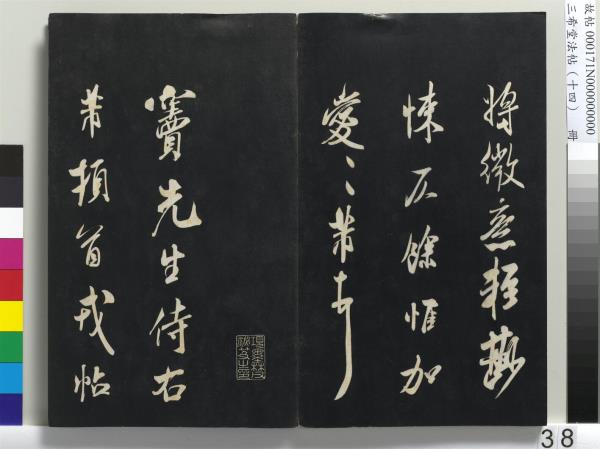 故帖 000171N000000000
三希堂法帖（十四） 冊
將微意輕尠
悚仄餘惟加
愛〻芾頓首
竇先生侍右
芾頓首戎帖
38